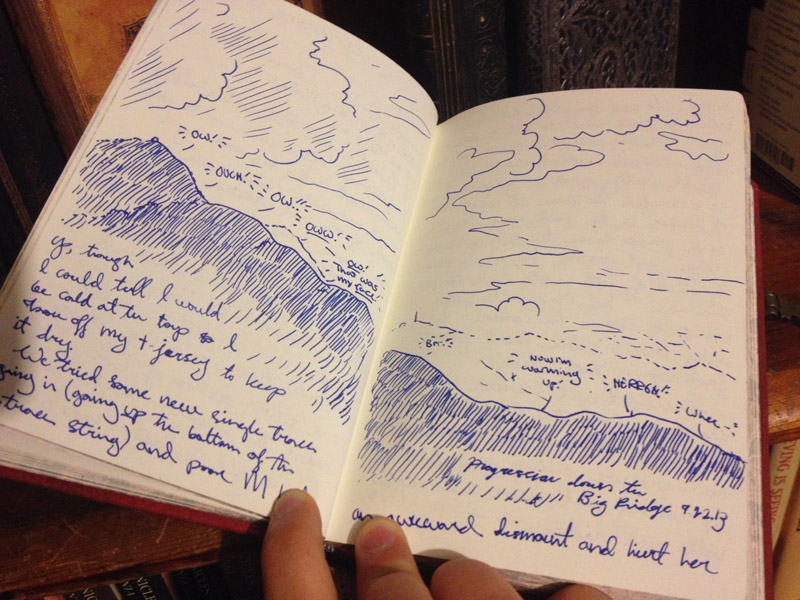 OW!
OUCH!
OW!!
OWW!
OW!
THAT WAS
MY FACE!
y, though
I could tell I would
be cold at the top so I
took off my + jersey to keep
it dry.
We tried some new single traces
going in (going up the bottom of the
traces string) and poor M
Brr..
NOW I'M
WARMING
UP!
HERRGH!
Whee
Progression down the
Big Ridge 9.22.13
an awkward dismount and hurt her